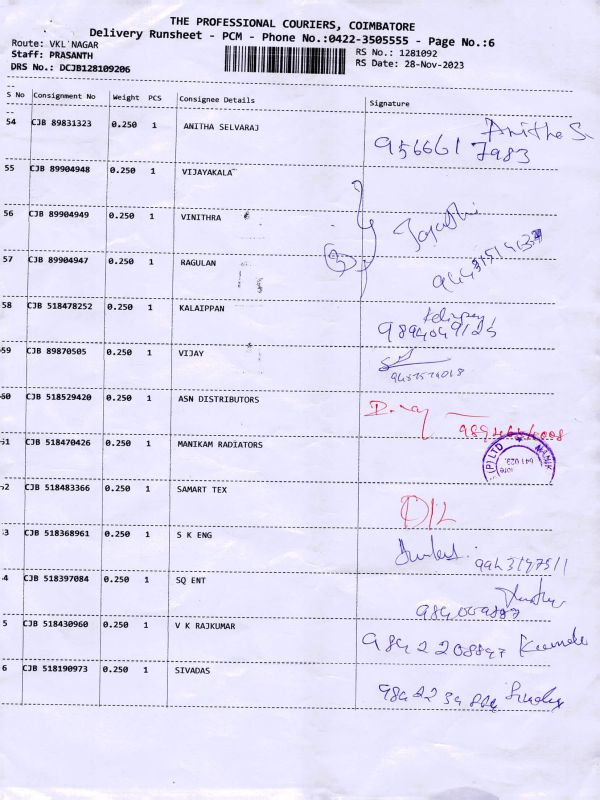 THE PROFESSIONAL COURIERS, COIMBATORE
Delivery Runsheet - PCM - Phone No.:0422-3505555 - Page No.:6
Route: VKL NAGAR
Staff: PRASANTH
DRS No.: DCJB128109206
RS No.: 1281092
RS Date: 28-Nov-2023
S No Consignment No Weight PCS Consignee Details Signature
54 CJB 89831323 0.250 1 ANITHA SELVARAJ Anitha S
9566617983
55 CJB 89904948 0.250 1 VIJAYAKALA
56 CJB 89904949 0.250 1 VINITHRA
57 CJB 89904947 0.250 1 RAGULAN
58 CJB 518478252 0.250 1 KALAIPPAN
9894049125
59 CJB 89870505 0.250 1 VIJAY
60 CJB 518529420 0.250 1 ASN DISTRIBUTORS
51 CJB 518470426 0.250 1 MANIKAM RADIATORS
(P) LTD ★ MANIK
641 023.
52 CJB 518483366 0.250 1 SAMART TEX
3 CJB 518368961 0.250 1 S K ENG
4 CJB 518397084 0.250 1 SQ ENT
5 CJB 518430960 0.250 1 V K RAJKUMAR
9842208847
6 CJB 518190973 0.250 1 SIVADAS